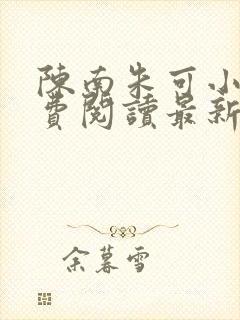 陳南朱可小
費閱讀最新
余暮雪